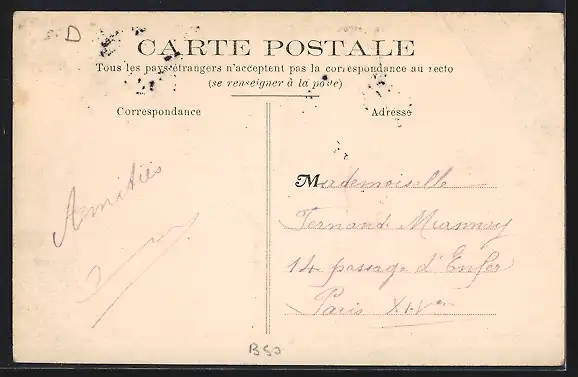 D
CARTE POSTALE
Tous les pays étrangers n'acceptent pas la correspondance au recto
(se renseigner à la poste)
Correspondance
Adresse
Amitiés
Mademoiselle
Fernand
14 passage d'Enfer
Paris XIVe